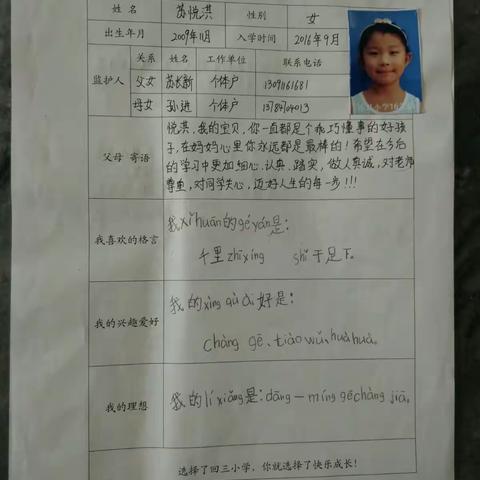 姓 名 苏悦淇 性别 女
出生年月 2009年11月 入学时间 2016年9月
关系 姓名 工作单位 联系电话
监护人 父女 苏长新 个体户 13091161681
母女 孙进 个体户 13784104013
悦淇，我的宝贝，你一直都是个乖巧懂事的好孩
子，在妈妈心里你永远都是最棒的！希望在今后
的学习中更加细心、认真、踏实，做人真诚，对老师
父母 寄语
尊重，对同学关心，迈好人生的每一步!!!
我xǐhuān的géyán是：
我喜欢的格言
千里zhīxíng shǐ于足下。
我的xìng qù ài好是：
我的兴趣爱好
chàng gē、tiào wǔ、huà huà。
我的理想
我的lǐ xiǎng是：dāng 一 míng gēchàng jiā。
选择了回三小学，你就选择了快乐成长！